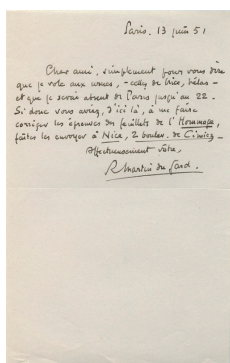 Paris. 13 juin 51
Cher ami, simplement pour vous dire
que je vole aux urnes, - celles de Nice, hélas -
et que je serai absent de Paris jusqu'au 22.
Si donc vous aviez, d'ici là, à me faire
corriger les épreuves des feuillets de l'Hommage,
faites les envoyer à Nice, 2 boulev. de Cimiez -
Affectueusement vôtre,
R. Martin du Gard.